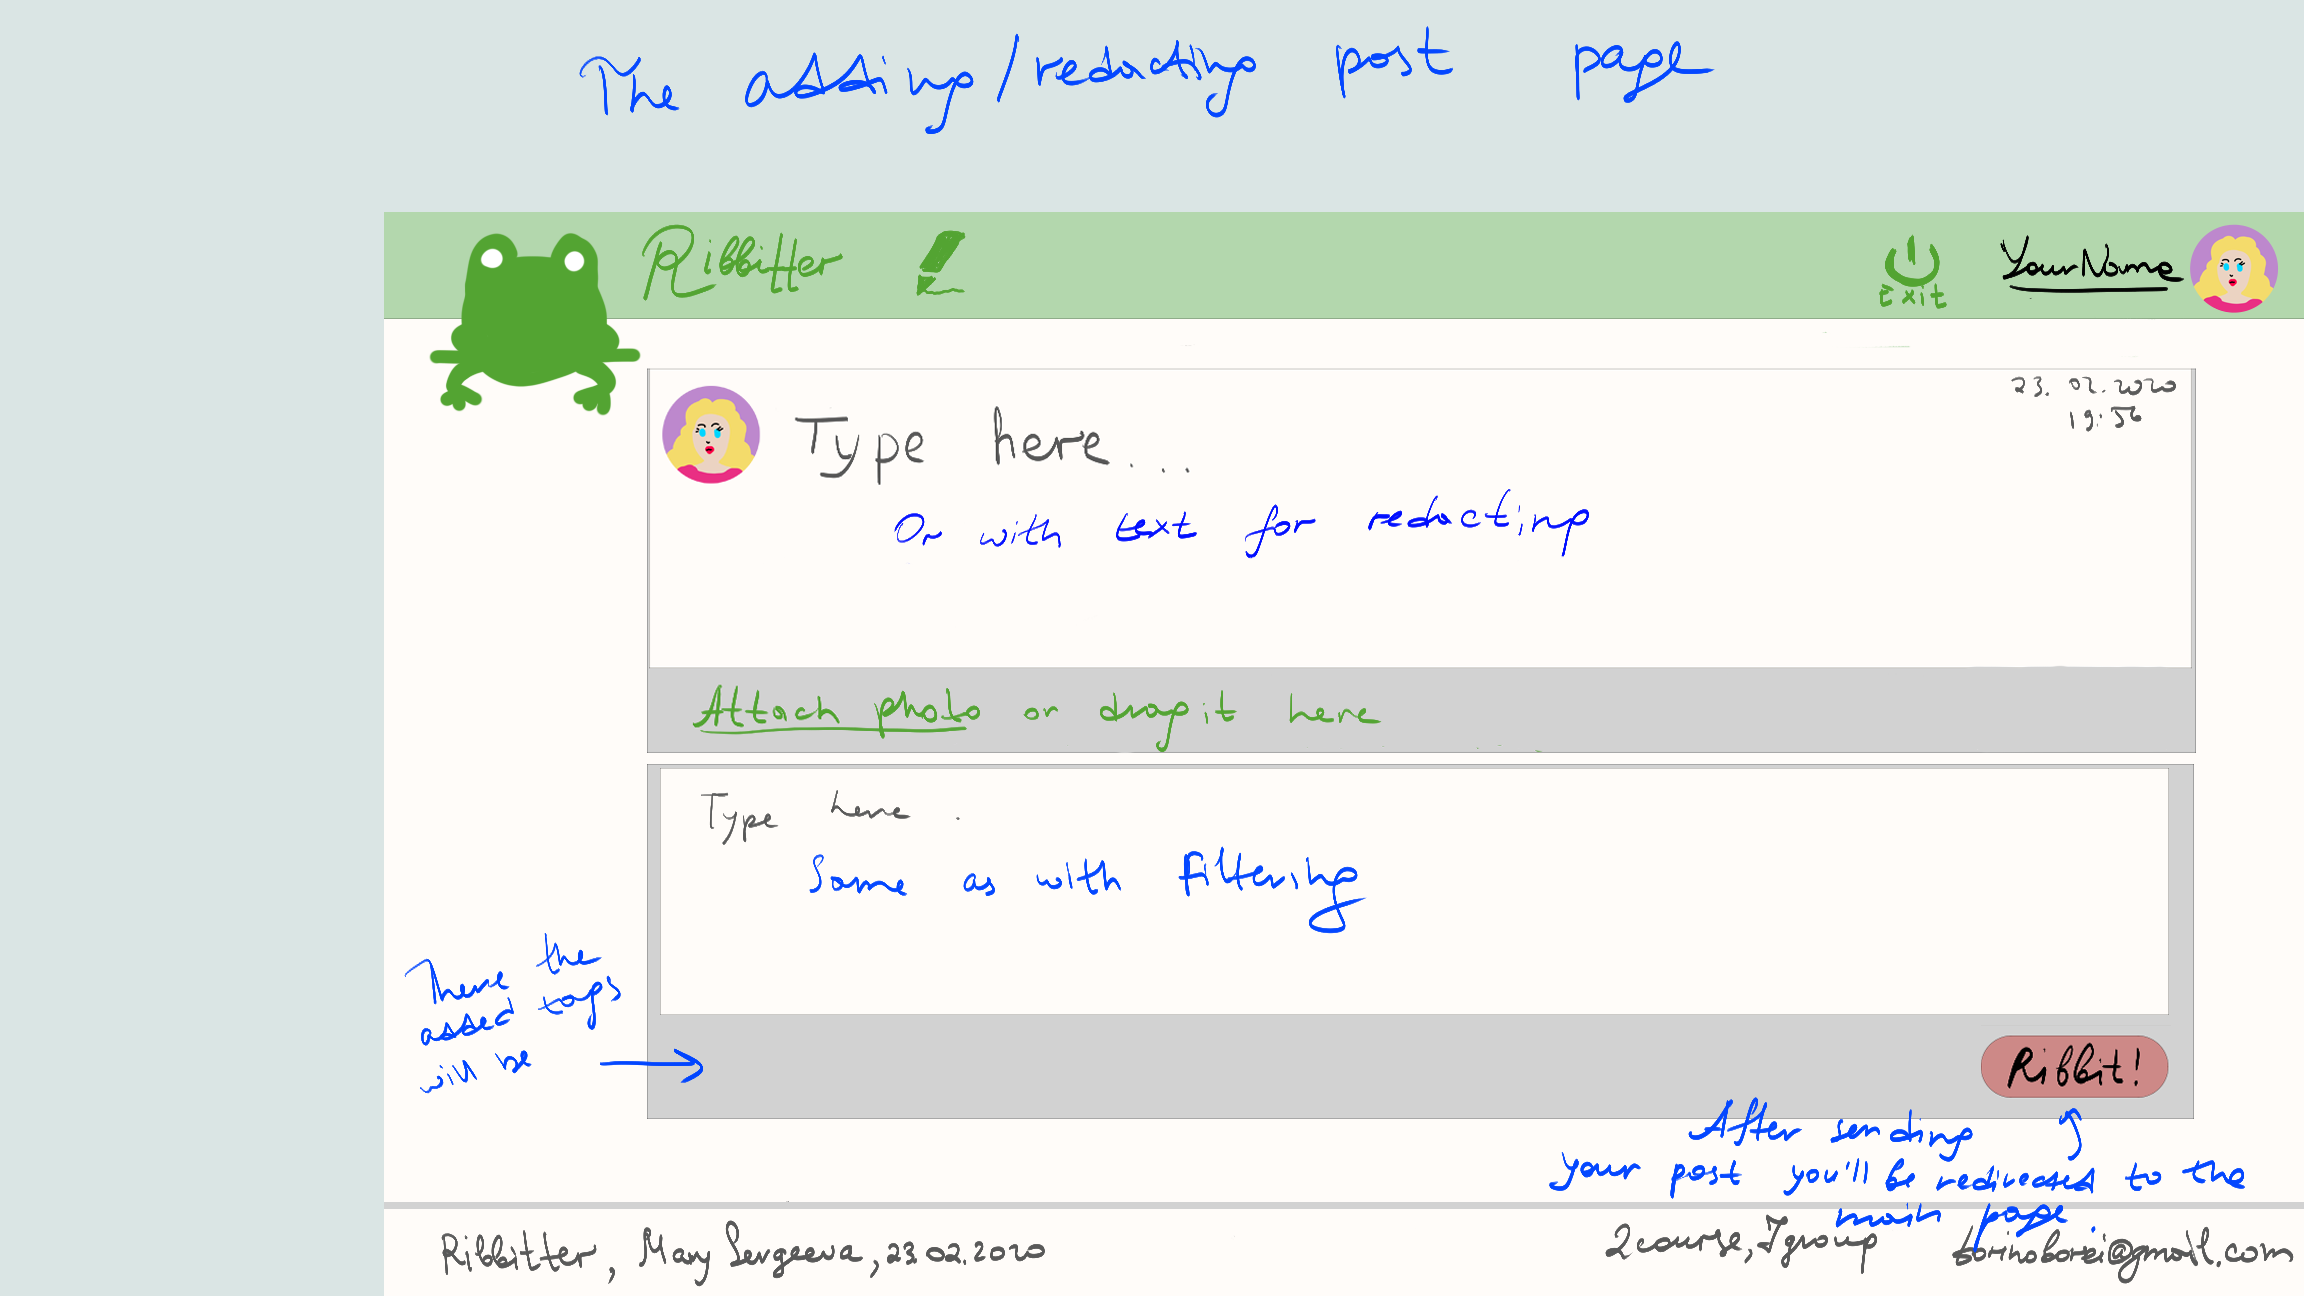 The adding/redacting post page
Ribbitter
Exit
YourName
23.02.2020
19:56
Type here...
Or with text for redacting
Attach photo or drop it here
Type here.
Same as with filtering
There the
added tags
will be
Ribbit!
After sending
your post you'll be redirected to the
main page.
Ribbitter, Mary Sergeeva, 23.02.2020
2course, 7group
@gmail.com